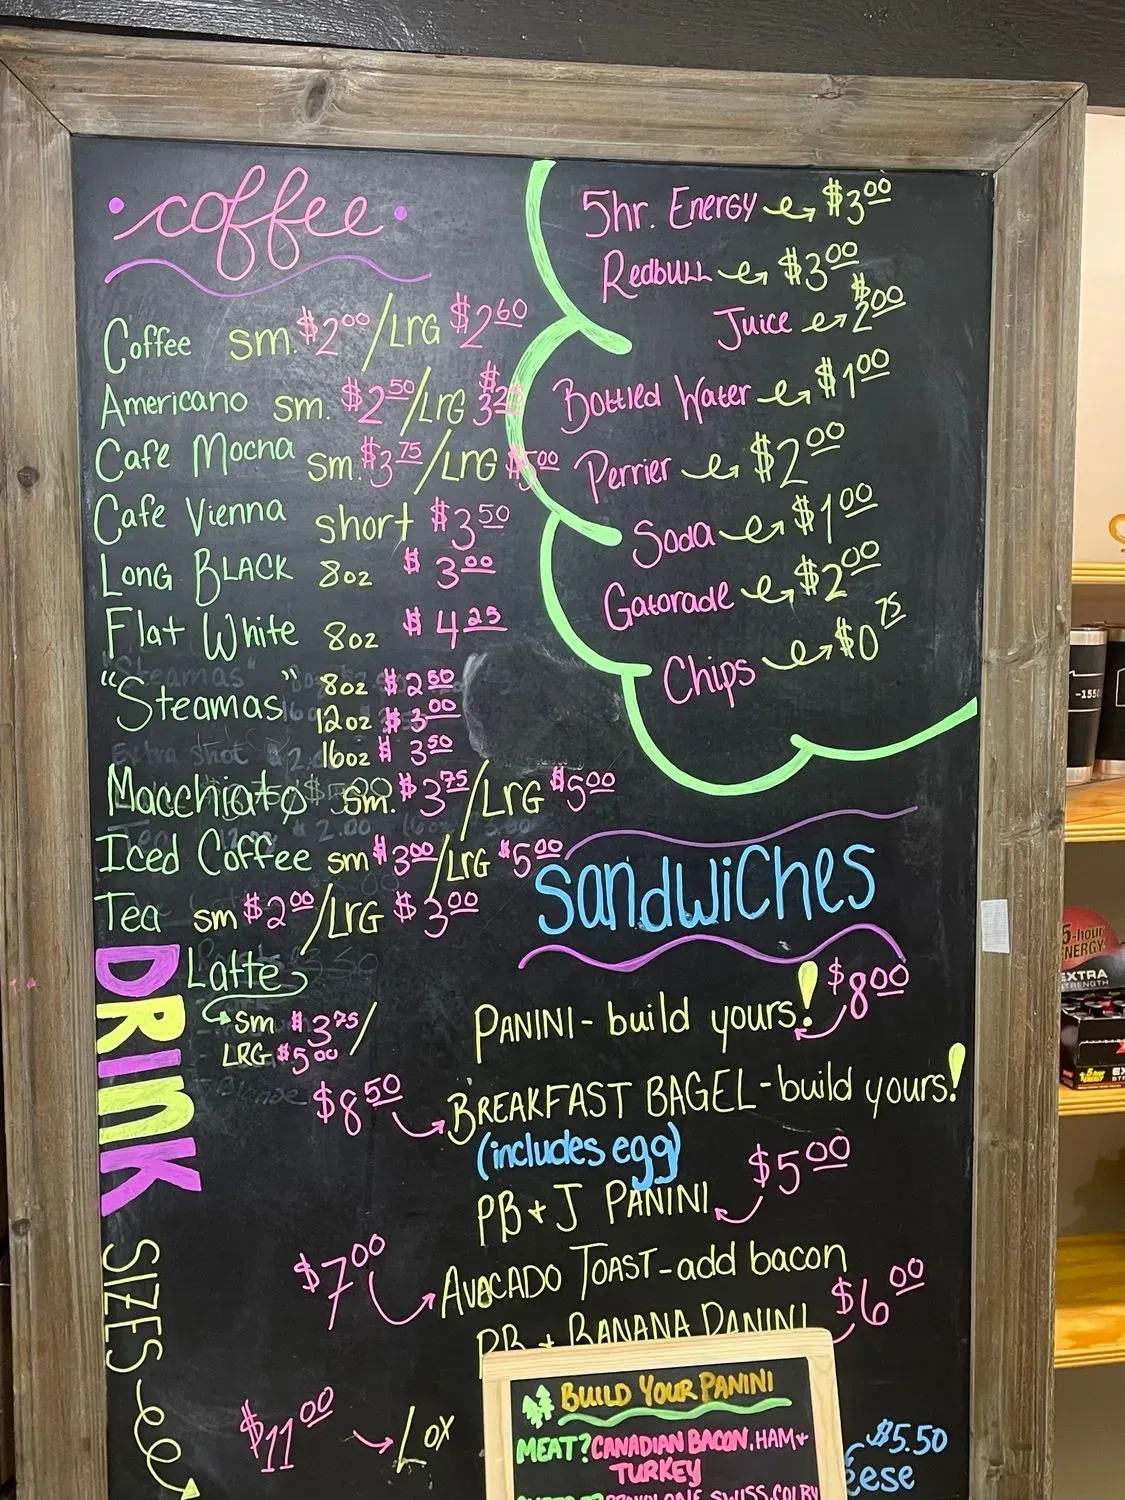 coffee
Coffee sm. $2.00/LRG $2.60
Americano sm. $2.50/LRG $3.25
Cafe Mocha sm. $3.75/LRG $5.00
Cafe Vienna short $3.50
Long BLACK 8oz $3.00
Flat White 8oz $4.25
"Steamas" 8oz $2.50
12oz $3.00
16oz $3.50
Macchiato sm. $3.75/LrG $5.00
Iced Coffee sm $3.00/LrG $5.00
Tea sm $2.00/LrG $3.00
Latte
sm $3.75/
LRG $5.00
DRINK
SIZES
5hr. Energy $3.00
Redbull $3.00
Juice $2.00
Bottled Water $1.00
Perrier $2.00
Soda $1.00
Gatorade $2.00
Chips $0.75
SANDWICHES
PANINI - build yours! $8.00
$8.50 BREAKFAST BAGEL - build yours!
(includes egg)
PB + J PANINI $5.00
$7.00 AVOCADO TOAST - add bacon
PB + BANANA PANINI $6.00
$11.00 LOX
$5.50
BUILD YOUR PANINI
MEAT? CANADIAN BACON, HAM +
TURKEY
PROVOLONE, SWISS, COLBY
5-hour
ENERGY
EXTRA
STRENGTH
-1550